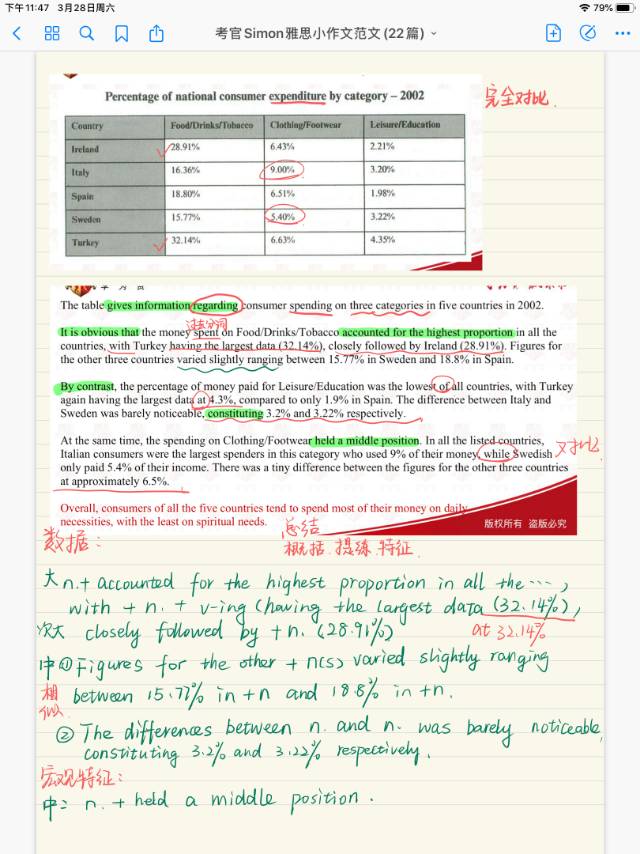 下午11:47 3月28日周六
79%
考官Simon雅思小作文范文(22篇)
Percentage of national consumer expenditure by category – 2002
完全对比
Country Food/Drinks/Tobacco Clothing/Footwear Leisure/Education
Ireland 28.91% 6.43% 2.21%
Italy 16.36% 9.00% 3.20%
Spain 18.80% 6.51% 1.98%
Sweden 15.77% 5.40% 3.22%
Turkey 32.14% 6.63% 4.35%
The table gives information regarding consumer spending on three categories in five countries in 2002.
过去分词
It is obvious that the money spent on Food/Drinks/Tobacco accounted for the highest proportion in all the
countries, with Turkey having the largest data (32.14%), closely followed by Ireland (28.91%). Figures for
the other three countries varied slightly ranging between 15.77% in Sweden and 18.8% in Spain.
By contrast, the percentage of money paid for Leisure/Education was the lowest of all countries, with Turkey
again having the largest data at 4.3%, compared to only 1.9% in Spain. The difference between Italy and
Sweden was barely noticeable, constituting 3.2% and 3.22% respectively.
At the same time, the spending on Clothing/Footwear held a middle position. In all the listed countries,
Italian consumers were the largest spenders in this category who used 9% of their money, while Swedish
对比
only paid 5.4% of their income. There was a tiny difference between the figures for the other three countries
at approximately 6.5%.
Overall, consumers of all the five countries tend to spend most of their money on daily
necessities, with the least on spiritual needs.
版权所有 盗版必究
总结
数据:
概括 提练 特征
大 n.+ accounted for the highest proportion in all the ...,
with + n. + v-ing (having the largest data (32.14%),
次大 closely followed by + n. (28.91%)
at 32.14%
中 ① Figures for the other + n(s) varied slightly ranging
相似 between 15.77% in +n and 18.8% in +n.
② The differences between n. and n. was barely noticeable,
constituting 3.2% and 3.22% respectively.
宏观特征:
中: n. + held a middle position.